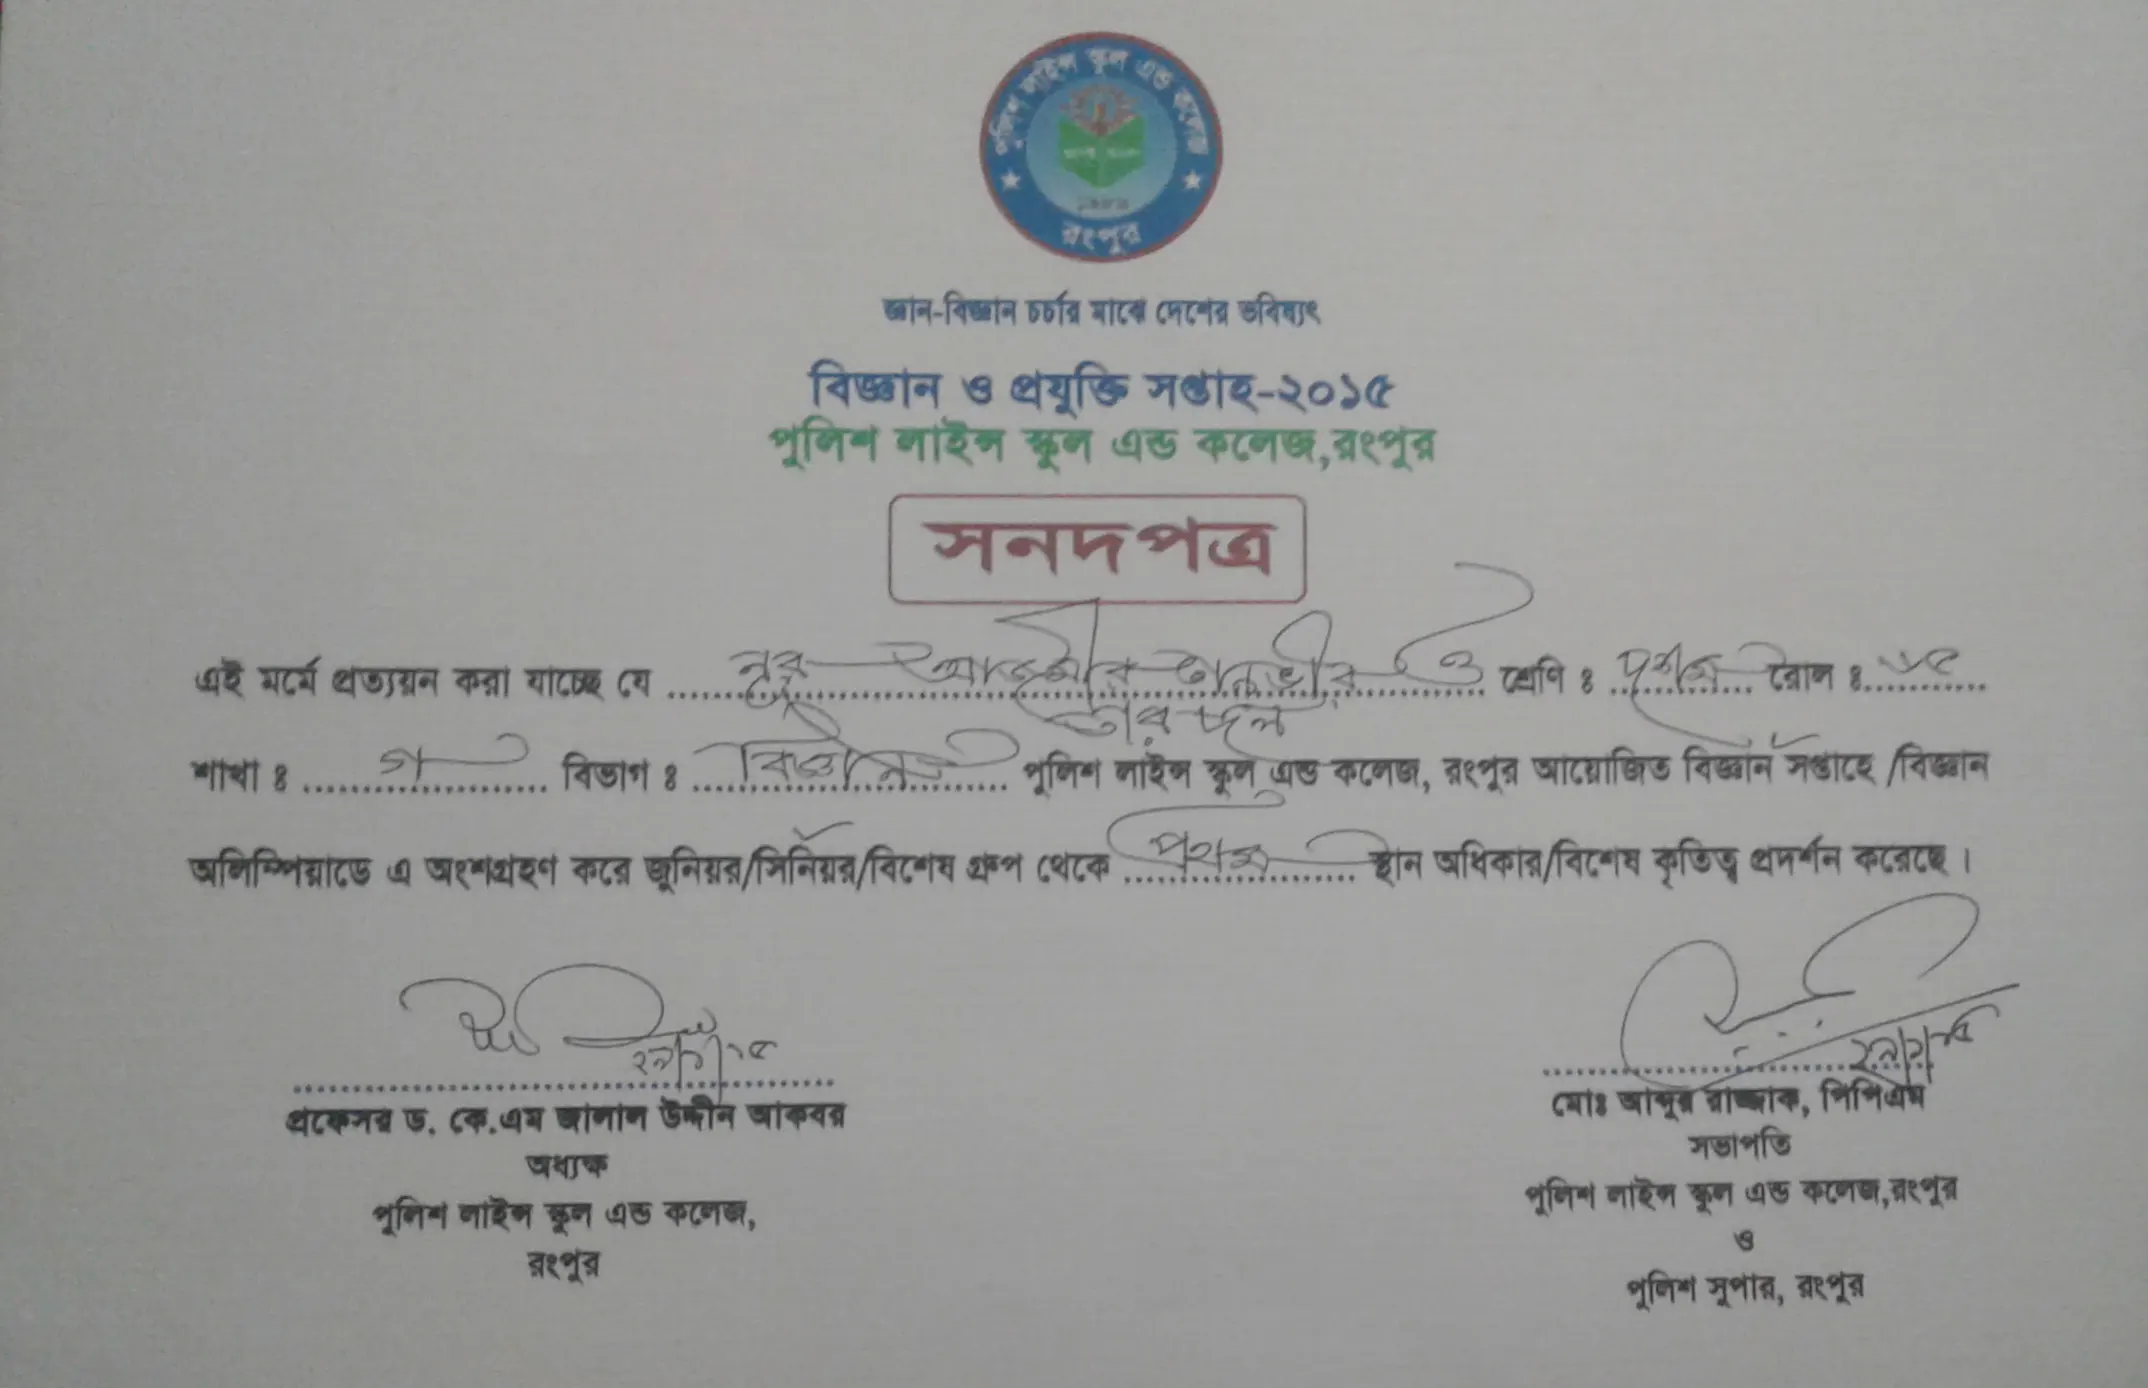 পুলিশ লাইন্স স্কুল এন্ড কলেজ
রংপুর
জ্ঞান-বিজ্ঞান চর্চার মাঝে দেশের ভবিষ্যৎ
বিজ্ঞান ও প্রযুক্তি সপ্তাহ-২০১৫
পুলিশ লাইন্স স্কুল এন্ড কলেজ,রংপুর
সনদপত্র
এই মর্মে প্রত্যয়ন করা যাচ্ছে যে নূর তানভীর ও শ্রেণি ঃ দশম রোল ঃ ১৫
তার দল
শাখা ঃ গ বিভাগ ঃ বিজ্ঞান পুলিশ লাইন্স স্কুল এন্ড কলেজ, রংপুর আয়োজিত বিজ্ঞান সপ্তাহে /বিজ্ঞান
অলিম্পিয়াডে এ অংশগ্রহণ করে জুনিয়র/সিনিয়র/বিশেষ গ্রুপ থেকে প্রথম স্থান অধিকার/বিশেষ কৃতিত্ব প্রদর্শন করেছে ।
প্রফেসর ড. কে.এম জালাল উদ্দীন আকবর
অধ্যক্ষ
পুলিশ লাইন্স স্কুল এন্ড কলেজ,
রংপুর
মোঃ আব্দুর রাজ্জাক, পিপিএম
সভাপতি
পুলিশ লাইন্স স্কুল এন্ড কলেজ,রংপুর
ও
পুলিশ সুপার, রংপুর